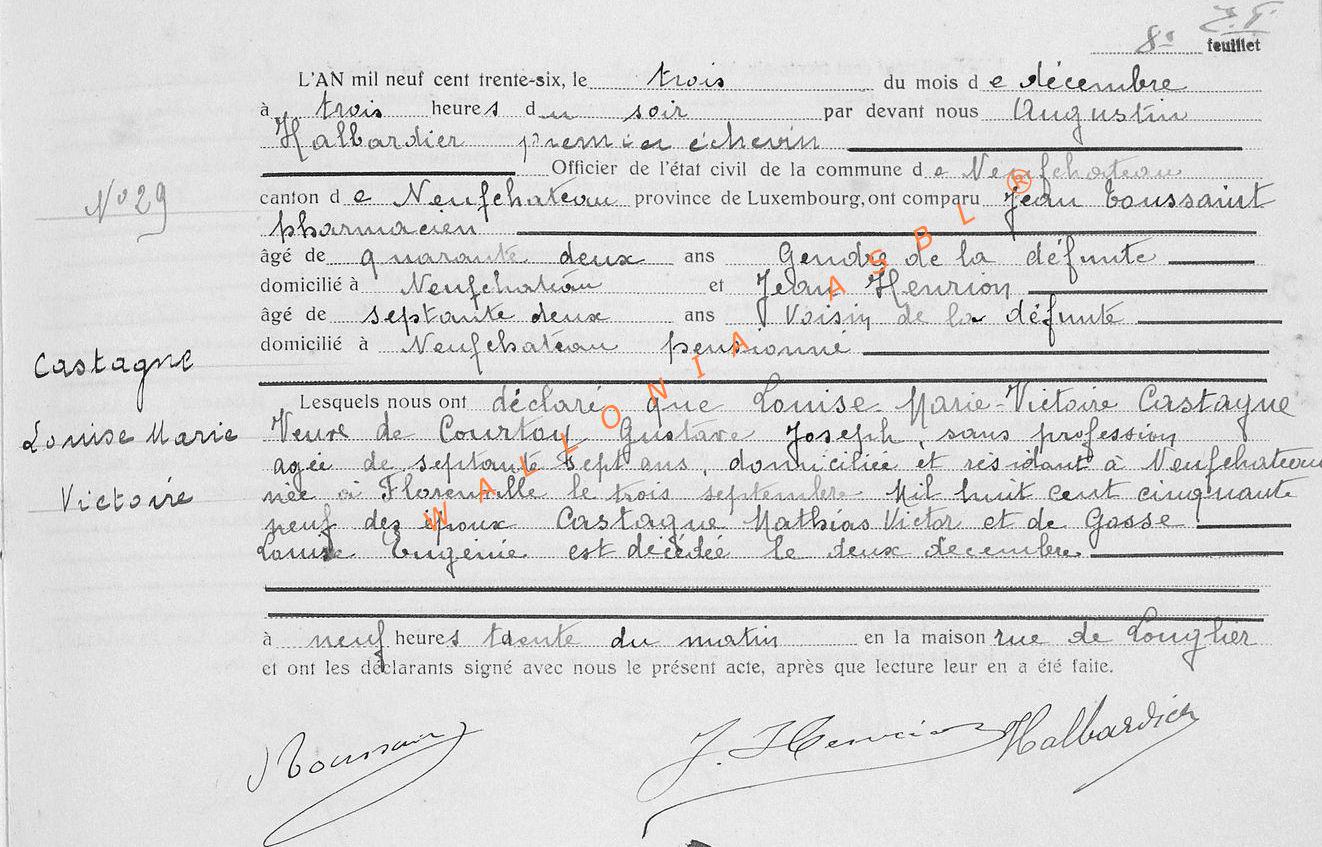 8e feuillet
L'AN mil neuf cent trente-six, le trois du mois de décembre
à trois heures du soir par devant nous Augustin
Halbardier premier échevin
Officier de l'état civil de la commune de Neufchateau
No 29
canton de Neufchateau province de Luxembourg, ont comparu Jean Toussaint
pharmacien
âgé de quarante deux ans Gendre de la défunte
domicilié à Neufchateau et Jean Henrion
âgé de septante deux ans Voisin de la défunte
domicilié à Neufchateau pensionné
Castagne
Louise Marie
Victoire
Lesquels nous ont déclaré que Louise-Marie-Victoire Castagne
Veuve de Courtoy Gustave Joseph, sans profession
agée de septante sept ans, domiciliée et résidant à Neufchateau
née à Florenville le trois septembre Mil huit cent cinquante
neuf des époux Castagne Mathias Victor et de Gosse
Louise Eugénie est décédée le deux decembre
à neuf heures trente du matin en la maison rue de Longlier
et ont les déclarants signé avec nous le présent acte, après que lecture leur en a été faite.
Toussaint J. Henrion Halbardier
WALLONIA ASBL ®